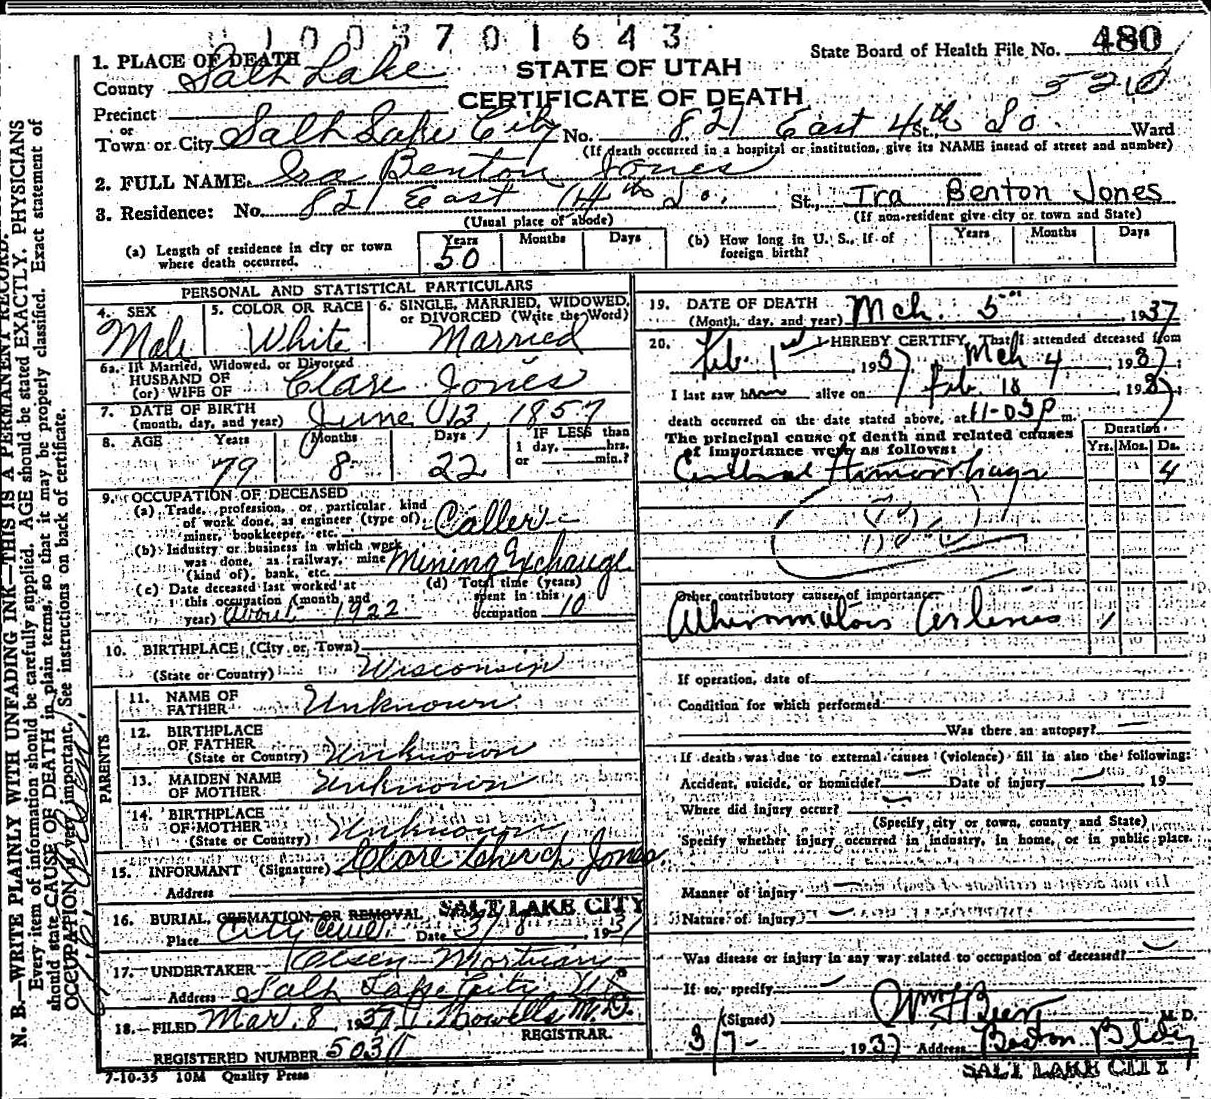 1003701643
State Board of Health File No. 480
1. PLACE OF DEATH
STATE OF UTAH
County Salt Lake
CERTIFICATE OF DEATH
Precinct
or
Town or City Salt Lake City No. 821 East 4th St., So. Ward
(If death occurred in a hospital or institution, give its NAME instead of street and number)
2. FULL NAME Ira Benton Jones
3. Residence: No. 821 East 4th So. St., Ira Benton Jones
(Usual place of abode)
(If non-resident give city or town and State)
(a) Length of residence in city or town where death occurred. Years 50 Months Days
(b) How long in U. S., if of foreign birth? Years Months Days
PERSONAL AND STATISTICAL PARTICULARS
4. SEX
Male
5. COLOR OR RACE
White
6. SINGLE, MARRIED, WIDOWED, or DIVORCED (Write the Word)
Married
6a. If Married, Widowed, or Divorced
HUSBAND OF
(or) WIFE OF Clare Jones
7. DATE OF BIRTH
(month, day, and year) June 13, 1857
8. AGE Years 79 Months 8 Days 22
IF LESS than
1 day, hrs.
or min.?
9. OCCUPATION OF DECEASED
(a) Trade, profession, or particular kind
of work done, as engineer (type of),
miner, bookkeeper, etc. Caller
(b) Industry or business in which work
was done, as railway, mine
(kind of), bank, etc. Mining Exchange
(c) Date deceased last worked at
this occupation (month and
year) April 1922
(d) Total time (years)
spent in this
occupation 10
10. BIRTHPLACE (City or Town)
(State or Country) Wisconsin
PARENTS
11. NAME OF
FATHER Unknown
12. BIRTHPLACE
OF FATHER
(State or Country) Unknown
13. MAIDEN NAME
OF MOTHER Unknown
14. BIRTHPLACE
OF MOTHER
(State or Country) Unknown
15. INFORMANT (Signature) Clare Church Jones
Address
16. BURIAL, CREMATION, OR REMOVAL SALT LAKE CITY
Place City Cem. Date 3/8, 1937
17. UNDERTAKER Olsen Mortuary
Address Salt Lake City Ut
18. FILED Mar. 8 1937 Howells M.D.
REGISTRAR.
REGISTERED NUMBER 503
7-10-35 10M Quality Press
19. DATE OF DEATH
(Month, day, and year) Mch. 5 1937
20. I HEREBY CERTIFY, That I attended deceased from
Feb. 1st, 1937, Mch 4, 1937;
I last saw h alive on Feb. 18, 1937
death occurred on the date stated above, at 11-05P m.
The principal cause of death and related causes
of importance were as follows:
Duration
Yrs. Mos. Ds.
Cerebral Hemorrhage 4
Other contributory causes of importance:
Atheromatous Arteries
If operation, date of
Condition for which performed
Was there an autopsy?
If death was due to external causes (violence) fill in also the following:
Accident, suicide, or homicide? Date of injury 19
Where did injury occur?
(Specify city or town, county and State)
Specify whether injury occurred in industry, in home, or in public place.
Manner of injury
Nature of injury
Was disease or injury in any way related to occupation of deceased?
If so, specify
(Signed) M. D.
3/7- 1937 Address Boston Bldg
SALT LAKE CITY
N. B.—WRITE PLAINLY WITH UNFADING INK—THIS IS A PERMANENT RECORD.
Every item of information should be carefully supplied. AGE should be stated EXACTLY. PHYSICIANS
should state CAUSE OF DEATH in plain terms, so that it may be properly classified. Exact statement of
OCCUPATION is very important. See instructions on back of certificate.